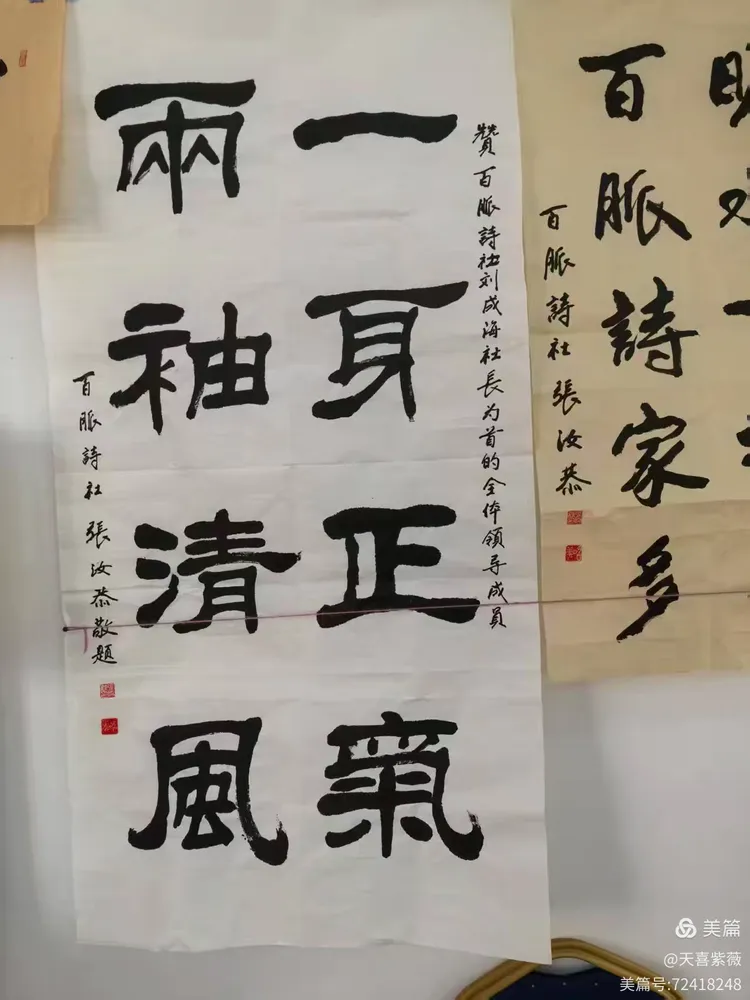 贊百脈詩社刘成海社長为首的全体領导成員
一身正氣
兩袖清風
百脈詩社 張汝恭敬題
百脈詩家多
百脈詩社 張汝恭
美篇
@天喜紫薇
美篇号:72418248